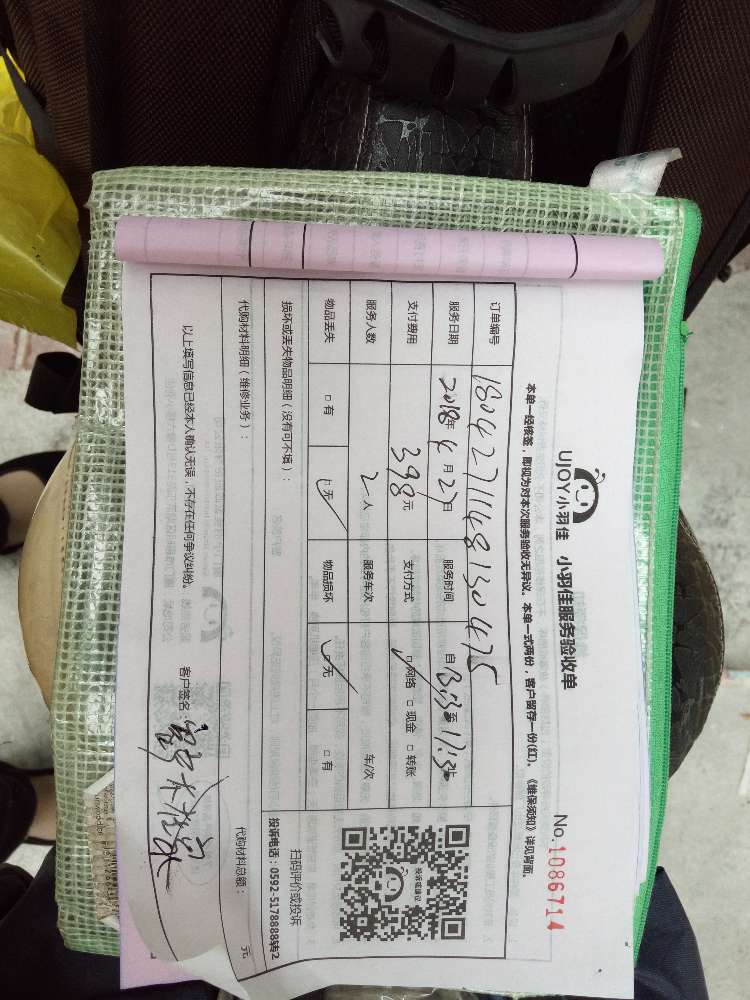 UJOY小羽佳 小羽佳服务验收单
No.1086714
本单一经核签，即视为对本次服务验收无异议。本单一式两份，客户留存一份(红)。《维保须知》详见背面。
订单编号 180427114813047５
服务日期 2018年4月27日 服务时间 自13:30至17:30
支付费用 398元 支付方式 ☑网络 □现金 □转账
服务人数 2人 服务车次 车/次
物品丢失 □有 ☑无 物品损坏 ☑无 □有
损坏或丢失物品明细（没有可不填）：
代购材料明细（维修业务）： 代购材料总额： 元
以上填写信息已经本人确认无误，不存在任何争议纠纷。 客户签名
投诉或建议
扫码评价或投诉
投诉电话：0592-5178888转2